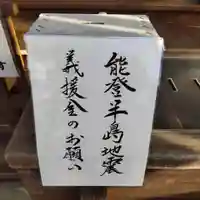 能登半島地震
義援金のお願い